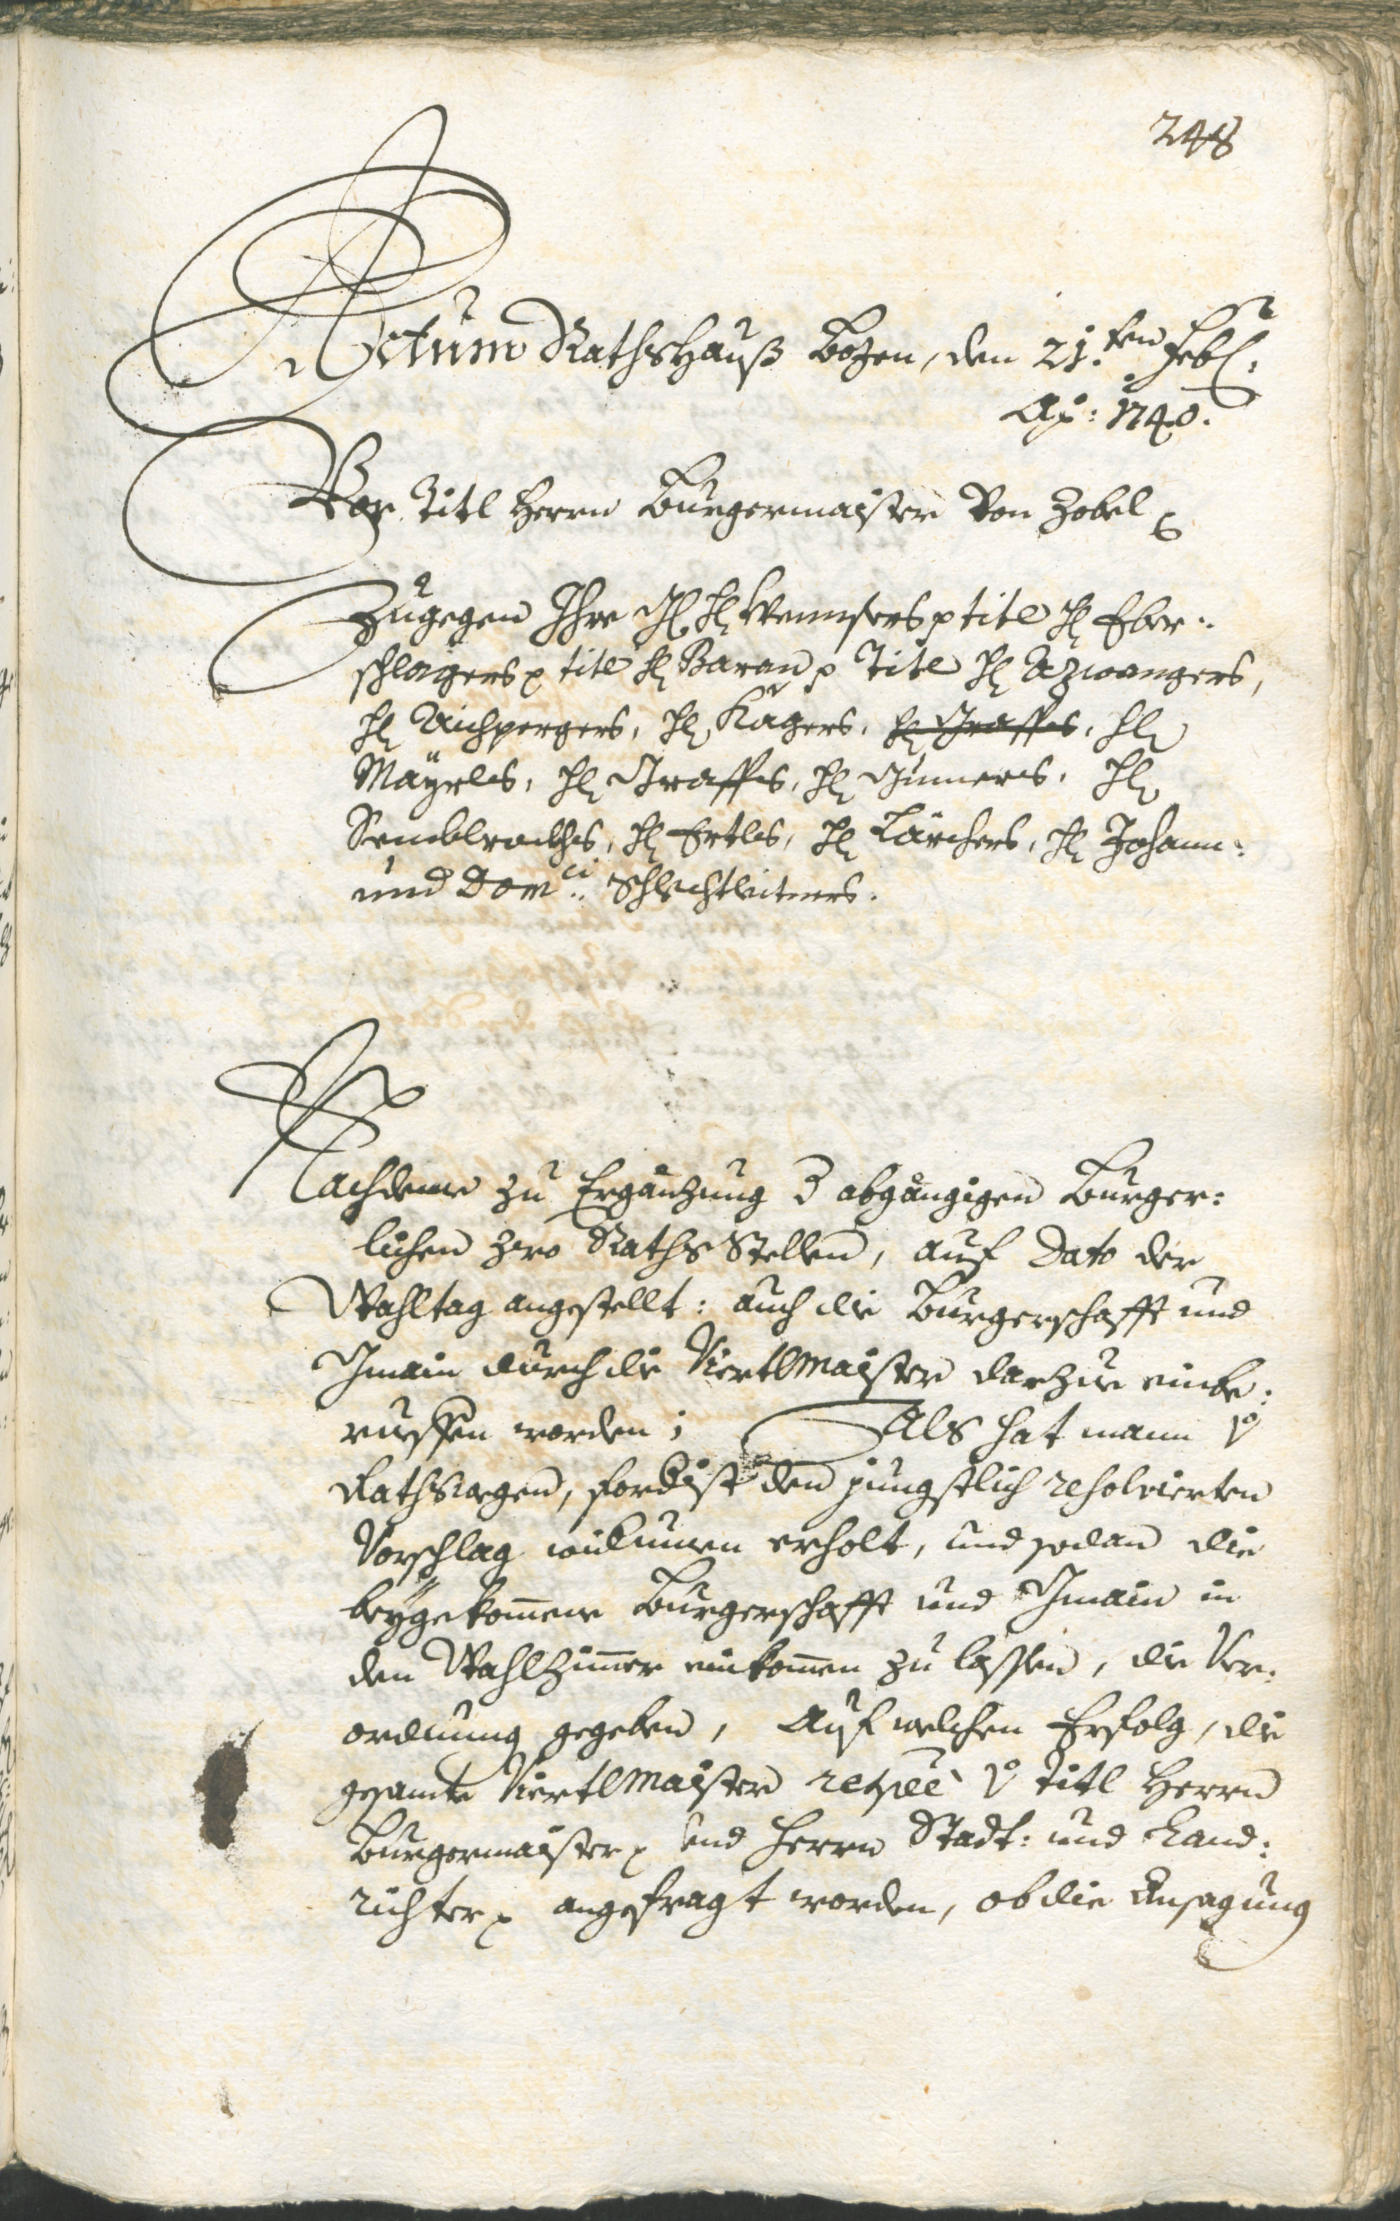 248
Actum Rathshauß Bozen, den 21.ten Feb.
Ao: 1740.
Vor Titl Herrn Burgermaister Von Zobel
Zugegen Ihro H H Wennsers p title H Eber-
schlagers p title H Baran p Title H Azwangers,
H Aichpergers, H Kägers, H Graffs, H
Mayrls, H Graffs, H Gumers, H
Semblrockhs, H Ertls, H Lärchers, H Johann:
und Domci: Schlechtleitners.
Nachdeme zu Ergänzung 3 abgängigen Burger:
lichen Raths Stellen, auf Dato der
Wahltag angestellt: auch die Burgerschafft und
Gmain durch die Viertlmaister darzue einbe:
rueffen worden; Als hat mann vo
Rathswegen, fordist den jüngstlich resolvierten
Vorschlag widumen erholt, und sodan die
beygekomene Burgerschafft und Gmain in
den Wahlzimer einkomen zu lassen, die Ver:
ordnung gegeben, Auf welchen Erfolg, die
gesamte Viertlmaister vo Titl Herrn
Burgermaister p und Herrn Stadt: und Land:
richter p angefragt worden, ob die Ansagung